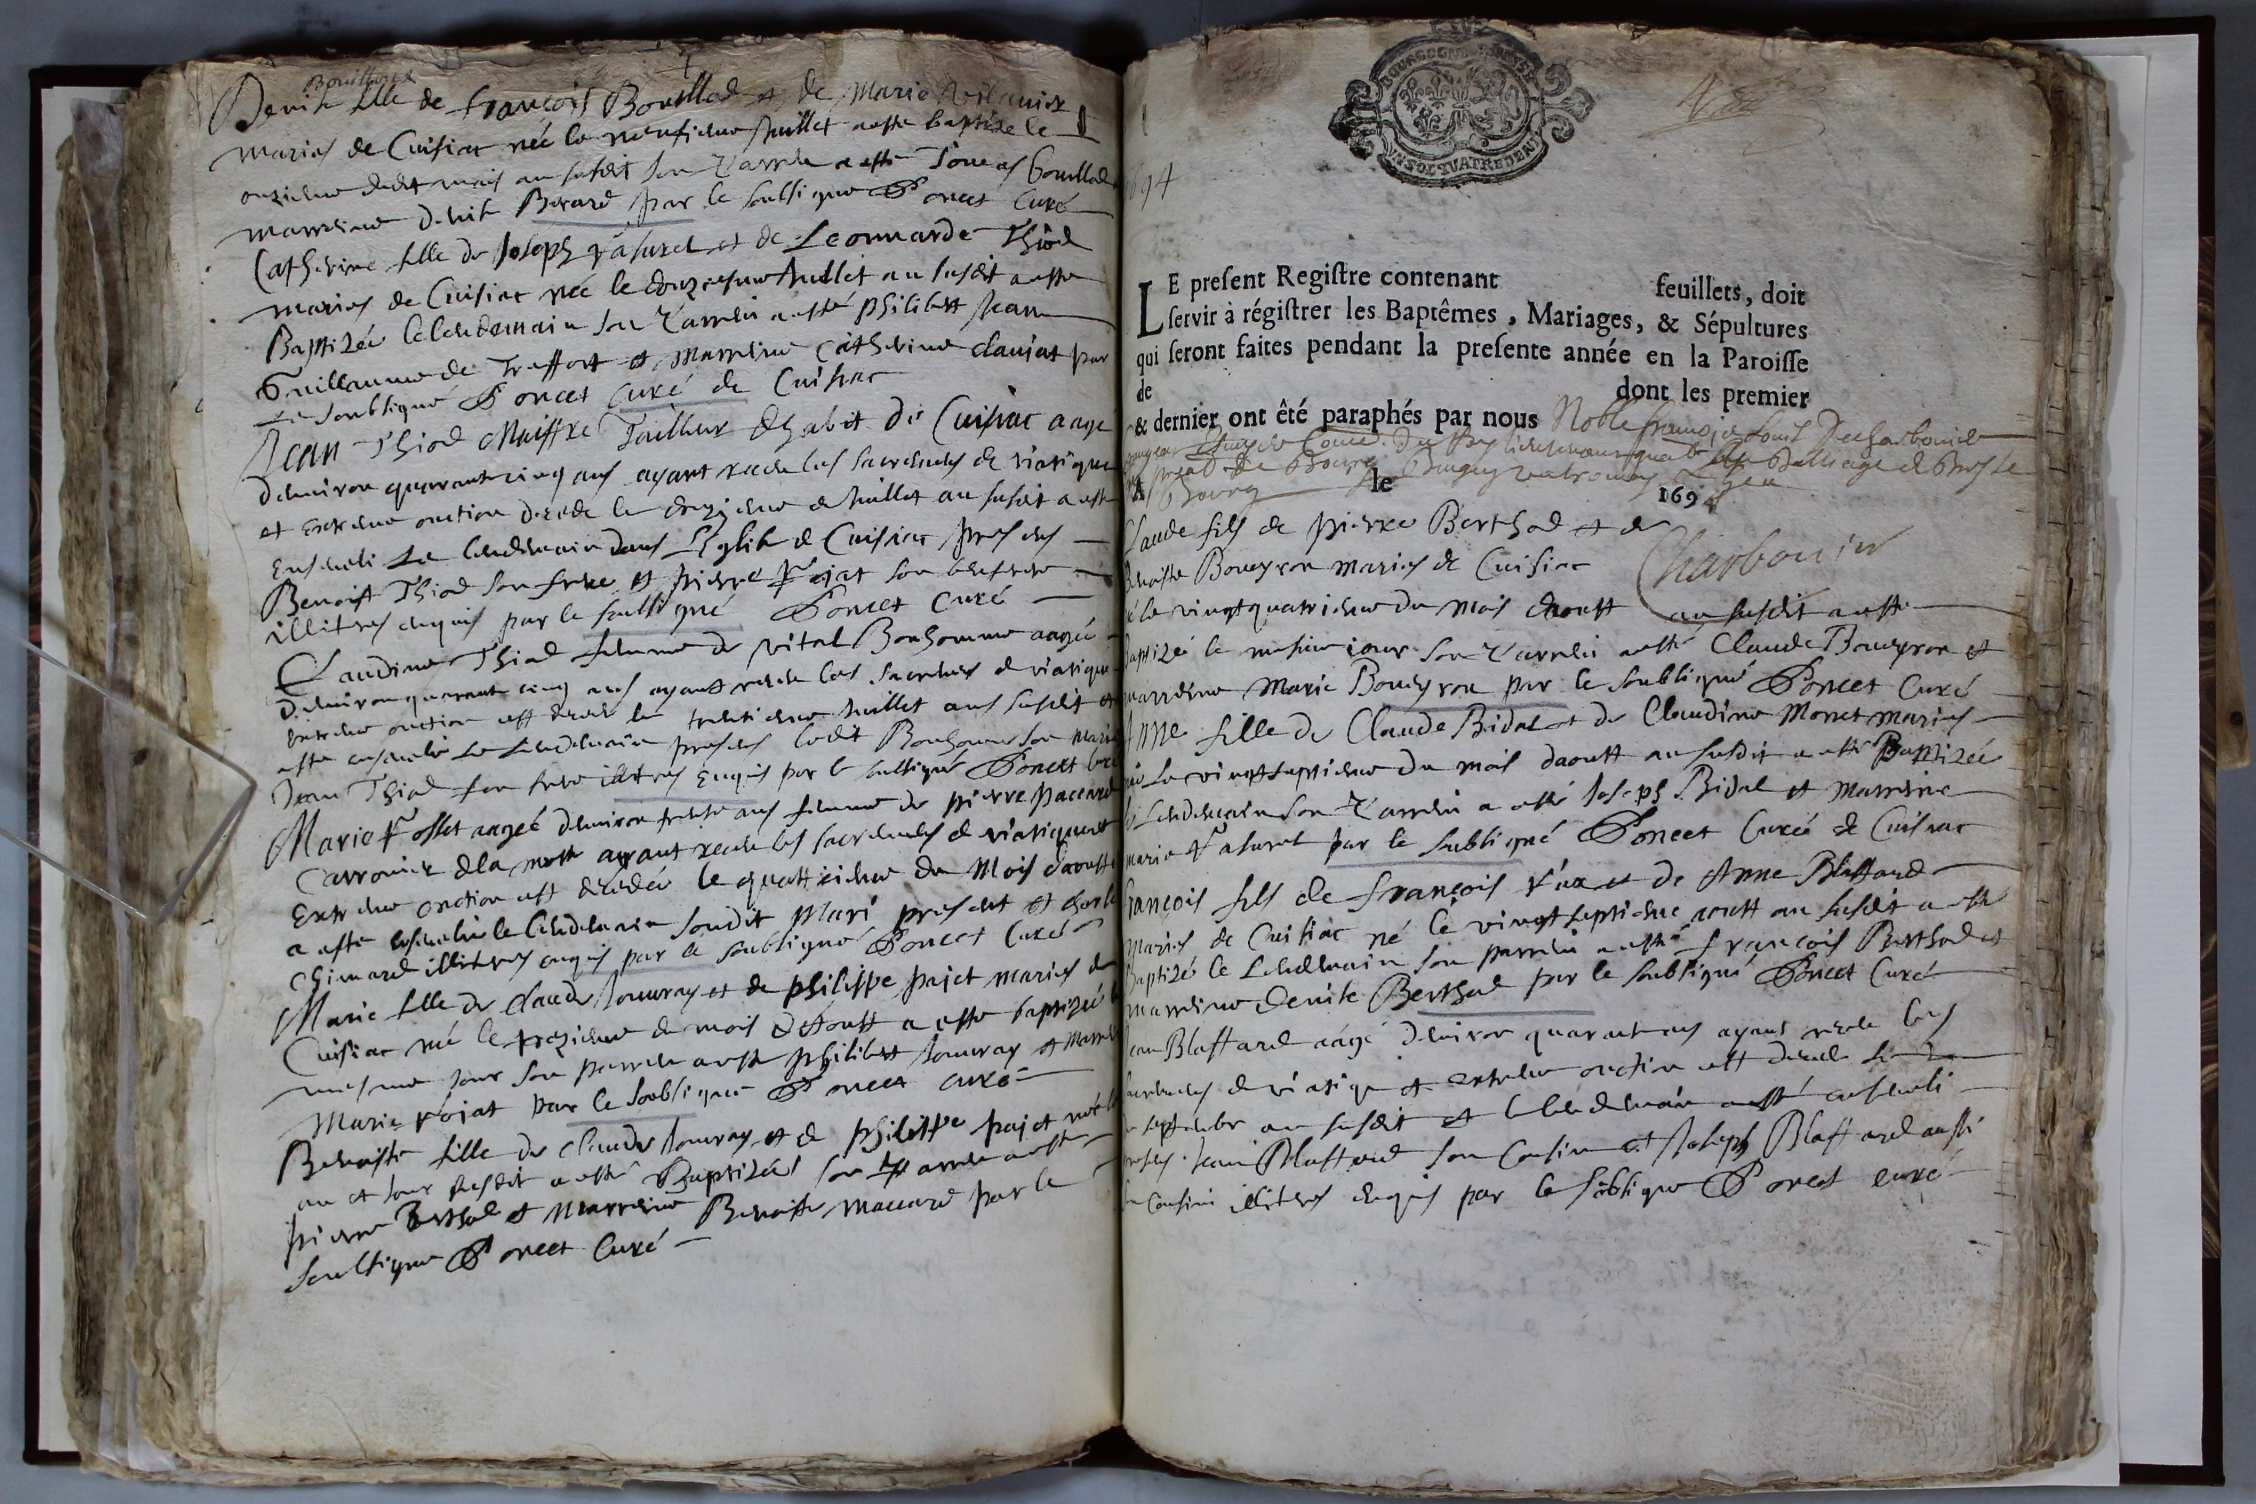 Bouillard
Denise fille de françois Bouillod et de Marie
Maries de Cuisiat née le neufieme Juillet a esté baptizée le
onzieme dudt mois an susdit son parrain a esté Bouillod
marreine denise Berard par le soubsigné Poncet Curé
Catherine fille de Joseph Vasurel et de Leonnarde Thiod
maries de Cuisiat née le douziesme Juillet an susdit a esté
Baptizée le lendemain son parrein a esté philibert Jean
Guillaume de Treffort et marreine Catherine claujat par
le soubsigné Poncet Curé de Cuisiac
Jean Thiod Maistre Tailleur dhabit de Cuisiac aagé
denviron quarante cinq ans ayant receu les sacrements de viatique
et extreme onction decede le de Juillet an susdit a esté
enseveli le lendemain dans l'Eglise de Cuisiac presents
Benoist Thiod son frere et pierre son
illitres enquis par le soubsigné Poncet Curé
Claudine Thiod femme de vital Bonhomme aagée
denviron quarante cinq ans ayant receu les sacrements de viatique
extreme onction est decede le trentieme Juillet an susdit et
esté ensevelie le lendemain presents ledit Bonhomme son mari
Jean Thiod son frere illitres enquis par le soubsigné Poncet Curé
Marie aagée denviron trente ans femme de pierre paccard
Carronier de la ayant receu les sacrements de viatique et
Extreme onction est decedée le quattrieme du Mois daoust
a esté ensevelie le lendemain sondit Mari present et
Chimard illitres enquis par le soubsigné Poncet Curé
Marie fille de claude Jouvray et de philippe pajet maries de
Cuisiac née le trezieme du mois d'Aoust a esté baptizée le
mesme jour son parrein a esté philibert Jouvray et marreine
Marie par le soubsigné Poncet curé
Benoiste fille de claude Jouvray et de philippe pajet née le
an et jour susdit a esté Baptizée son parrein a esté
pierre Berthod et marreine Benoiste maccard par le
soubsigné Poncet Curé
BOURGOGNE BRESSE
UN SOL QUATRE DEN
1694
LE present Registre contenant feuillets, doit
servir à régistrer les Baptêmes, Mariages, & Sépultures
qui seront faites pendant la presente année en la Paroisse
de dont les premier
& dernier ont êté paraphés par nous Noble françois Louis Decharbonier
au Balliage de Bresse
A Bourg le 1694
Claude fils de pierre Berthod et de
Benoiste Boueyron maries de Cuisiac Charbonier
né le vingtquatrieme du mois daoust an susdit a esté
baptizé le mesme jour son parrein a esté Claude Boueyron et
marreine Marie Boueyron par le soubsigné Poncet Curé
Anne fille de Claude Bidal et de Claudine Monet maries
née le vingtseptieme du mois daoust an susdit a esté Baptizée
le lendemain son parrein a esté Joseph Bidal et marreine
marie Vasurel par le soubsigné Poncet Curé de Cuisiac
françois fils de françois et de Anne Blassard
Maries de Cuisiac né le vingt septieme aoust an susdit a esté
Baptizé le lendemain son parrein a esté françois Berthod et
marreine denise Berthod par le soubsigné Poncet Curé
Jean Blassard aagé denviron quarante ans ayant receu les
sacrements de viatique et extreme onction est decede le
septembre an susdit et le lendemain a esté enseveli
presents Jean Blassard son Cousin et Joseph Blassard aussi
son Cousin illitres enquis par le soubsigné Poncet curé